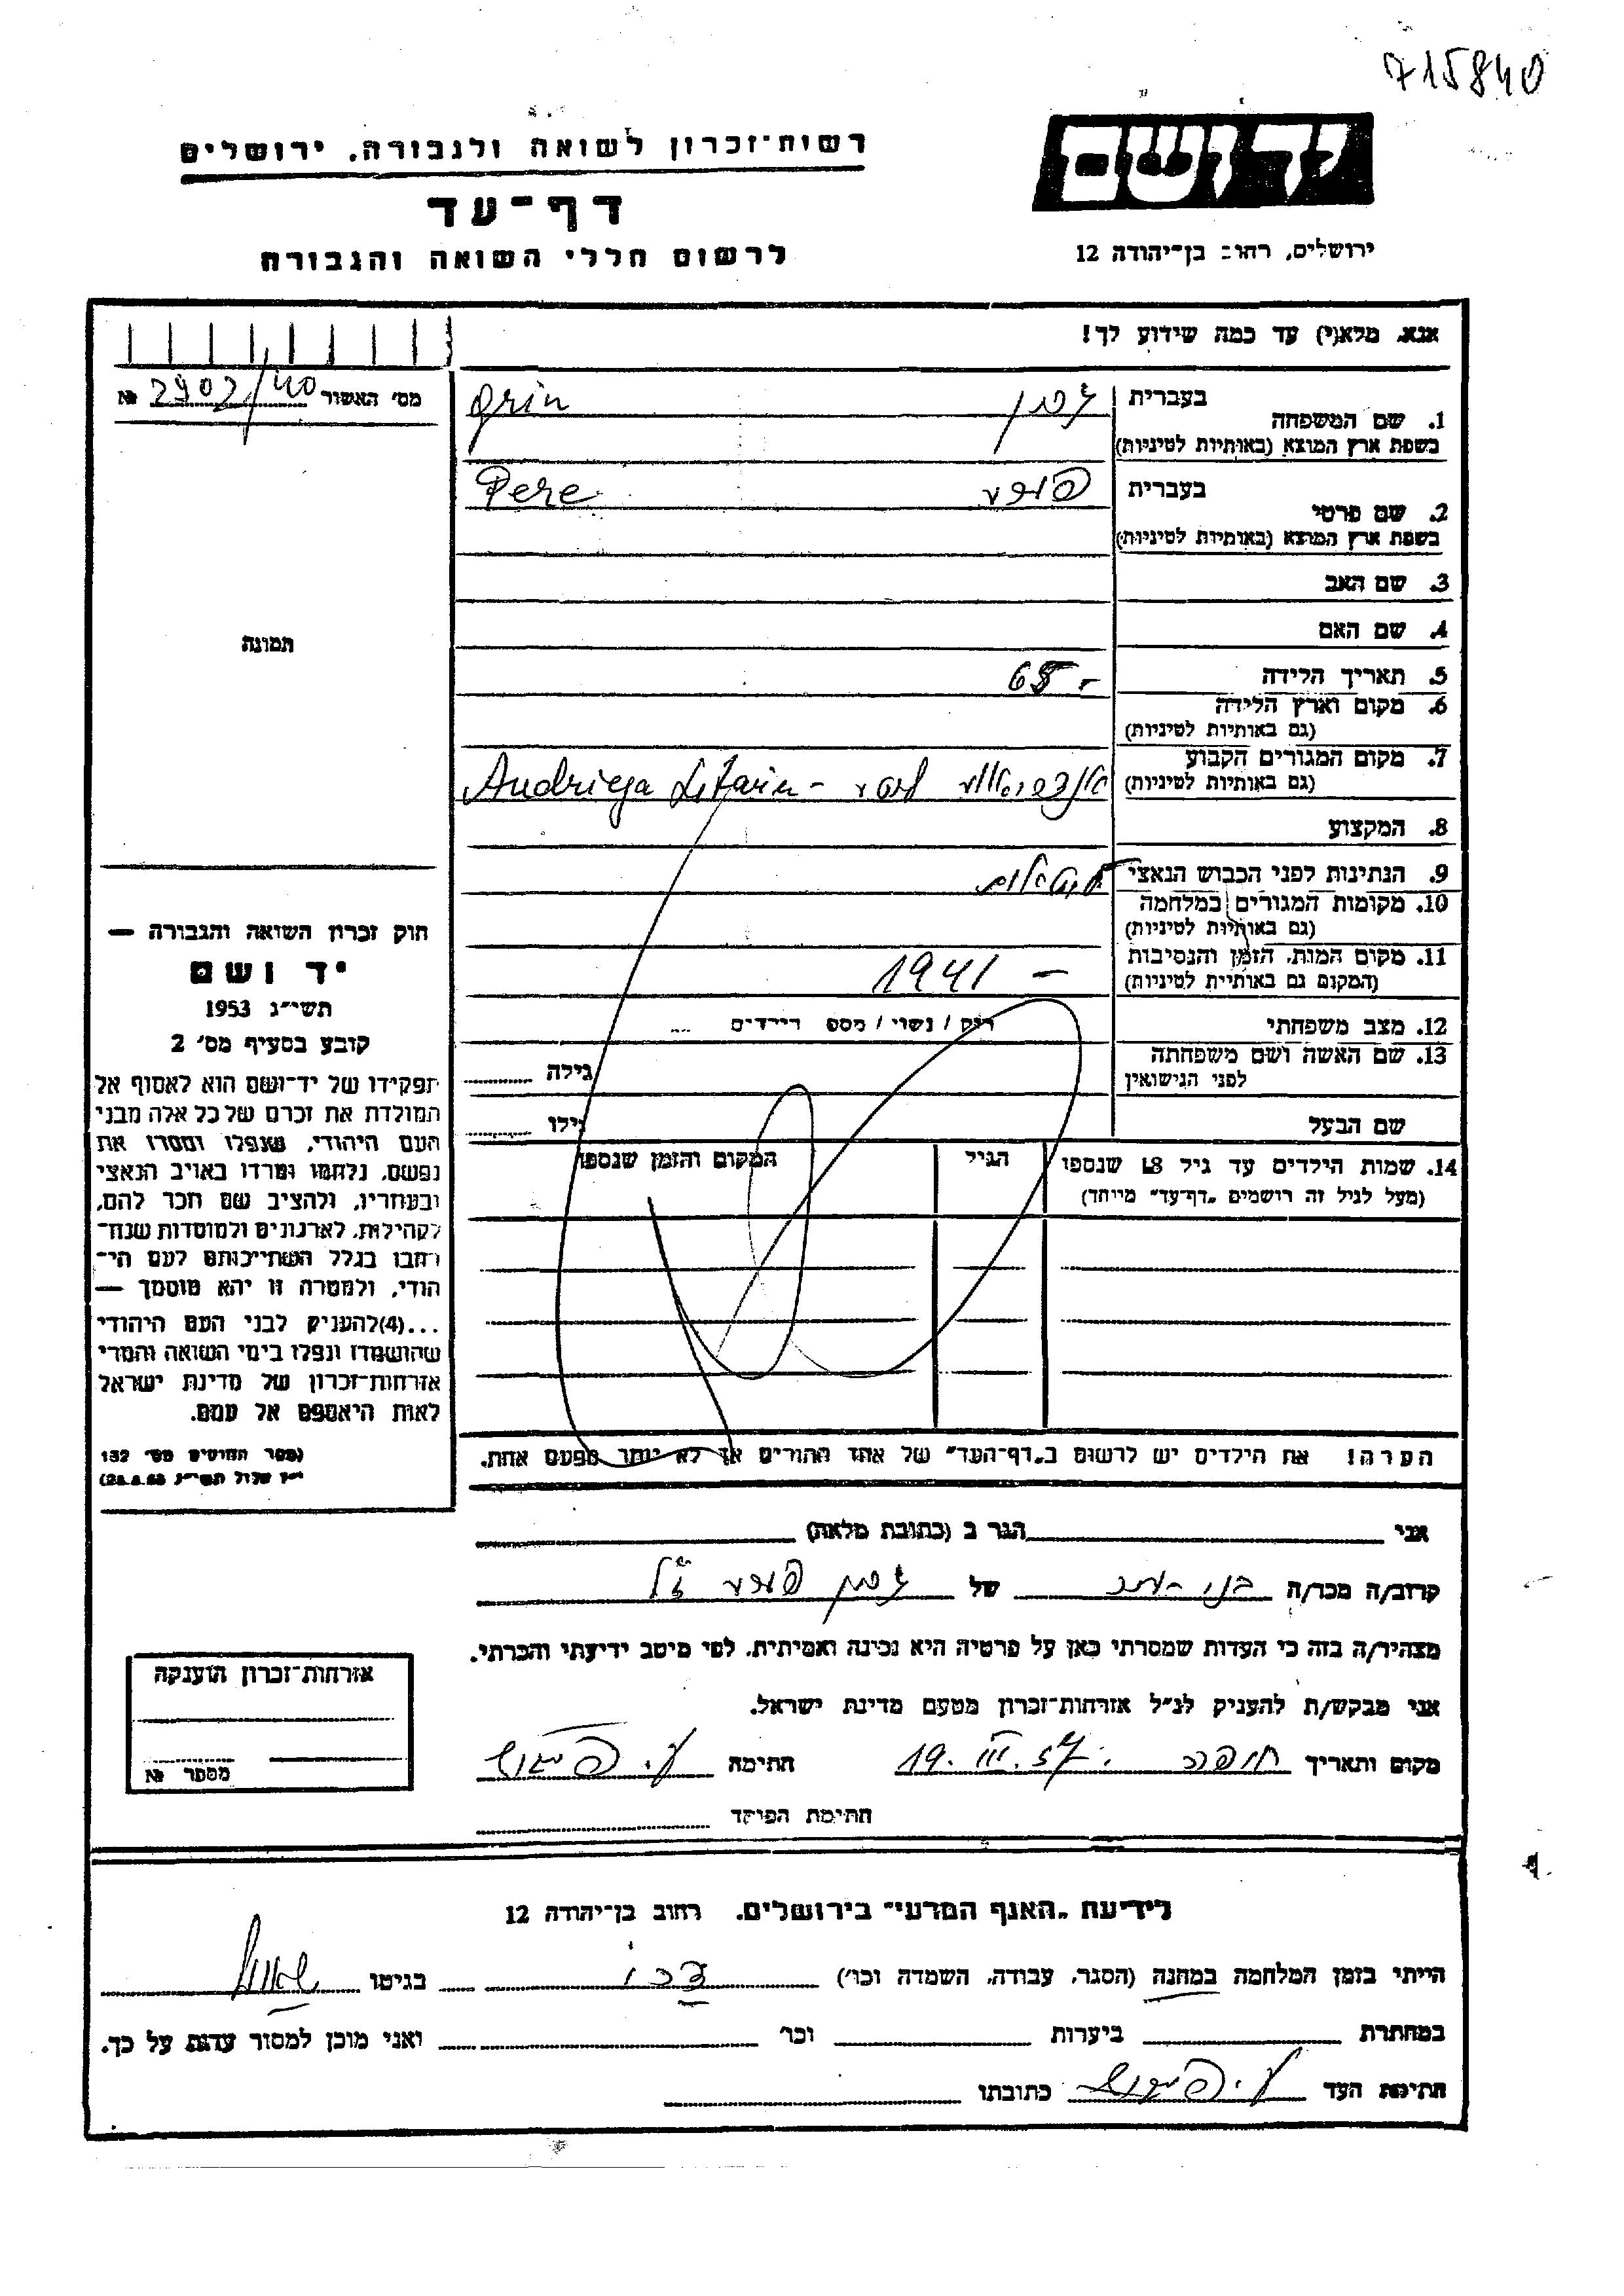 715840
יד ושם
רשות-זכרון לשואה ולגבורה, ירושלים
דף-עד
לרשום חללי השואה והגבורה
ירושלים, רחוב בן-יהודה 12
אנא, מלא(י) עד כמה שידוע לך!
מס' האשור 2902/40 №
1. שם המשפחה
בעברית גרין
בשפת ארץ המוצא (באותיות לטיניות) Grin
2. שם פרטי
בעברית
בשפת ארץ המוצא (באותיות לטיניות) Pere
3. שם האב
4. שם האם
5. תאריך הלידה 65 -
6. מקום וארץ הלידה
(גם באותיות לטיניות)
7. מקום המגורים הקבוע
(גם באותיות לטיניות)
8. המקצוע
9. הנתינות לפני הכבוש הנאצי
10. מקומות המגורים במלחמה
(גם באותיות לטיניות)
11. מקום המות, הזמן והנסיבות
(המקום גם באותיות לטיניות) 1941 -
12. מצב משפחתי רוק / נשוי / מספ הילדים ...
13. שם האשה ושם משפחתה
לפני הנישואין גילה
שם הבעל גילו
14. שמות הילדים עד גיל 18 שנספו הגיל המקום והזמן שנספו
(מעל לגיל זה רושמים „דף-עד" מיוחד)
הערה! את הילדים יש לרשום ב„דף-העד" של אחד ההורים אך לא יותר מפעם אחת.
תמונה
חוק זכרון השואה והגבורה —
יד ושם
תשי"ג 1953
קובע בסעיף מס' 2
תפקידו של יד-ושם הוא לאסוף אל
המולדת את זכרם של כל אלה מבני
העם היהודי, שנפלו ומסרו את
נפשם, נלחמו ומרדו באויב הנאצי
ובעוזריו, ולהציב שם וזכר להם,
לקהילות, לארגונים ולמוסדות שנח-
רבו בגלל השתייכותם לעם הי-
הודי, ולמטרה זו יהא מוסמך —
...(4)להעניק לבני העם היהודי
שהושמדו ונפלו בימי השואה והמרי
אזרחות-זכרון של מדינת ישראל
לאות היאספם אל עמם.
(ספר החוקים מס' 132
י"ז אלול תשי"ג 28.8.53)
אני הגר ב (כתובת מלאה)
קרוב/ה מכר/ה של גרין ז"ל
מצהיר/ה בזה כי העדות שמסרתי כאן על פרטיה היא נכונה ואמיתית, לפי מיטב ידיעתי והכרתי.
אני מבקש/ת להעניק לנ"ל אזרחות-זכרון מטעם מדינת ישראל.
מקום ותאריך 19. III. 57 חתימה
חתימת הפוקד
אזרחות-זכרון הוענקה
מספר №
לידיעת „האגף המדעי" בירושלים, רחוב בן-יהודה 12
הייתי בזמן המלחמה במחנה (הסגר, עבודה, השמדה וכו') בגיטו
במחתרת ביערות וכו' ואני מוכן למסור עדות על כך.
חתימת העד כתובתו